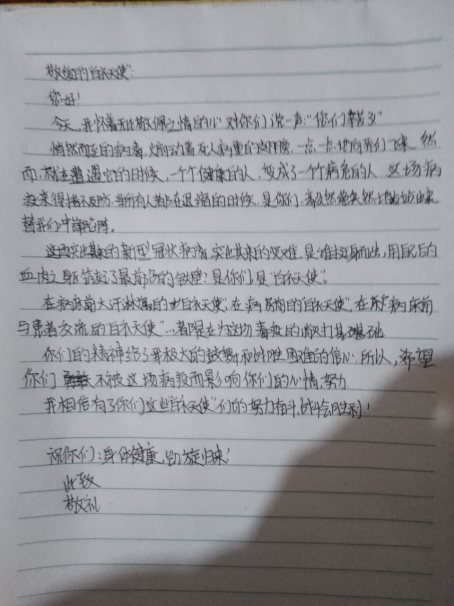 敬爱的"白衣天使"
您好!
今天,我怀着无比敬佩之情的心对你们说一声:"你们辛苦了"
悄然而至的病毒,煽动着死人病重的 一点一点地向我们飞来,然
而,就在遭遇它的时候,一个个健康的人,变成了一个个病危的人,这场病
疫来得措不及防,当所有人都在退缩的时候,是你们,毅然
替我们冲锋陷阵。
这场突如其来的新型冠状病毒,突如其来的灾难,是谁挺身而出,用自己的
血肉之躯筑起了最前沿的铁壁?是你们,是"白衣天使"。
在病床前大汗淋漓的"白衣天使",在病房前的"白衣天使",在 病床前
与患者交流的"白衣天使"…都是在为这场 打基础
你们的精神给了我极大的鼓舞和战胜困难的信心,所以,希望
你们 不被这场病毒而影响你们的心情,努力
我相信有了你们这些"白衣天使"们的努力奋斗,战 会胜利!
祝你们:身体健康,凯旋归来!
此致
敬礼